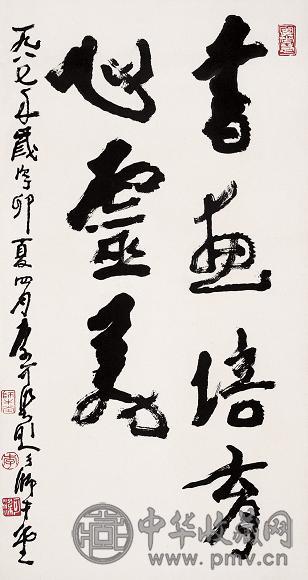 書畫培育
心靈美
一九八七年歲次丁卯夏四月李可染題于師牛堂
李
中华收藏网
www.pmv.cn